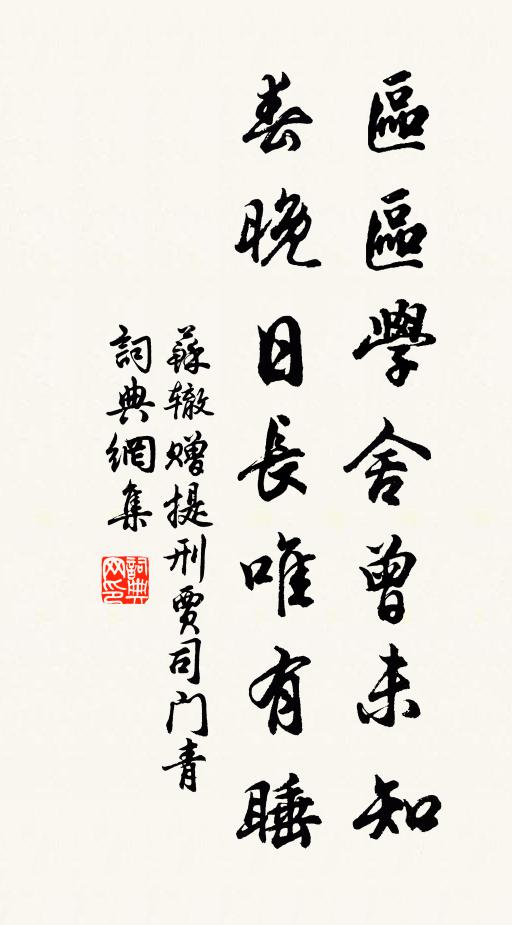 區區學舍曾未知
春晚日長唯有睡
蘇辙赠提刑賈司门青
詞典網集
詞典网印